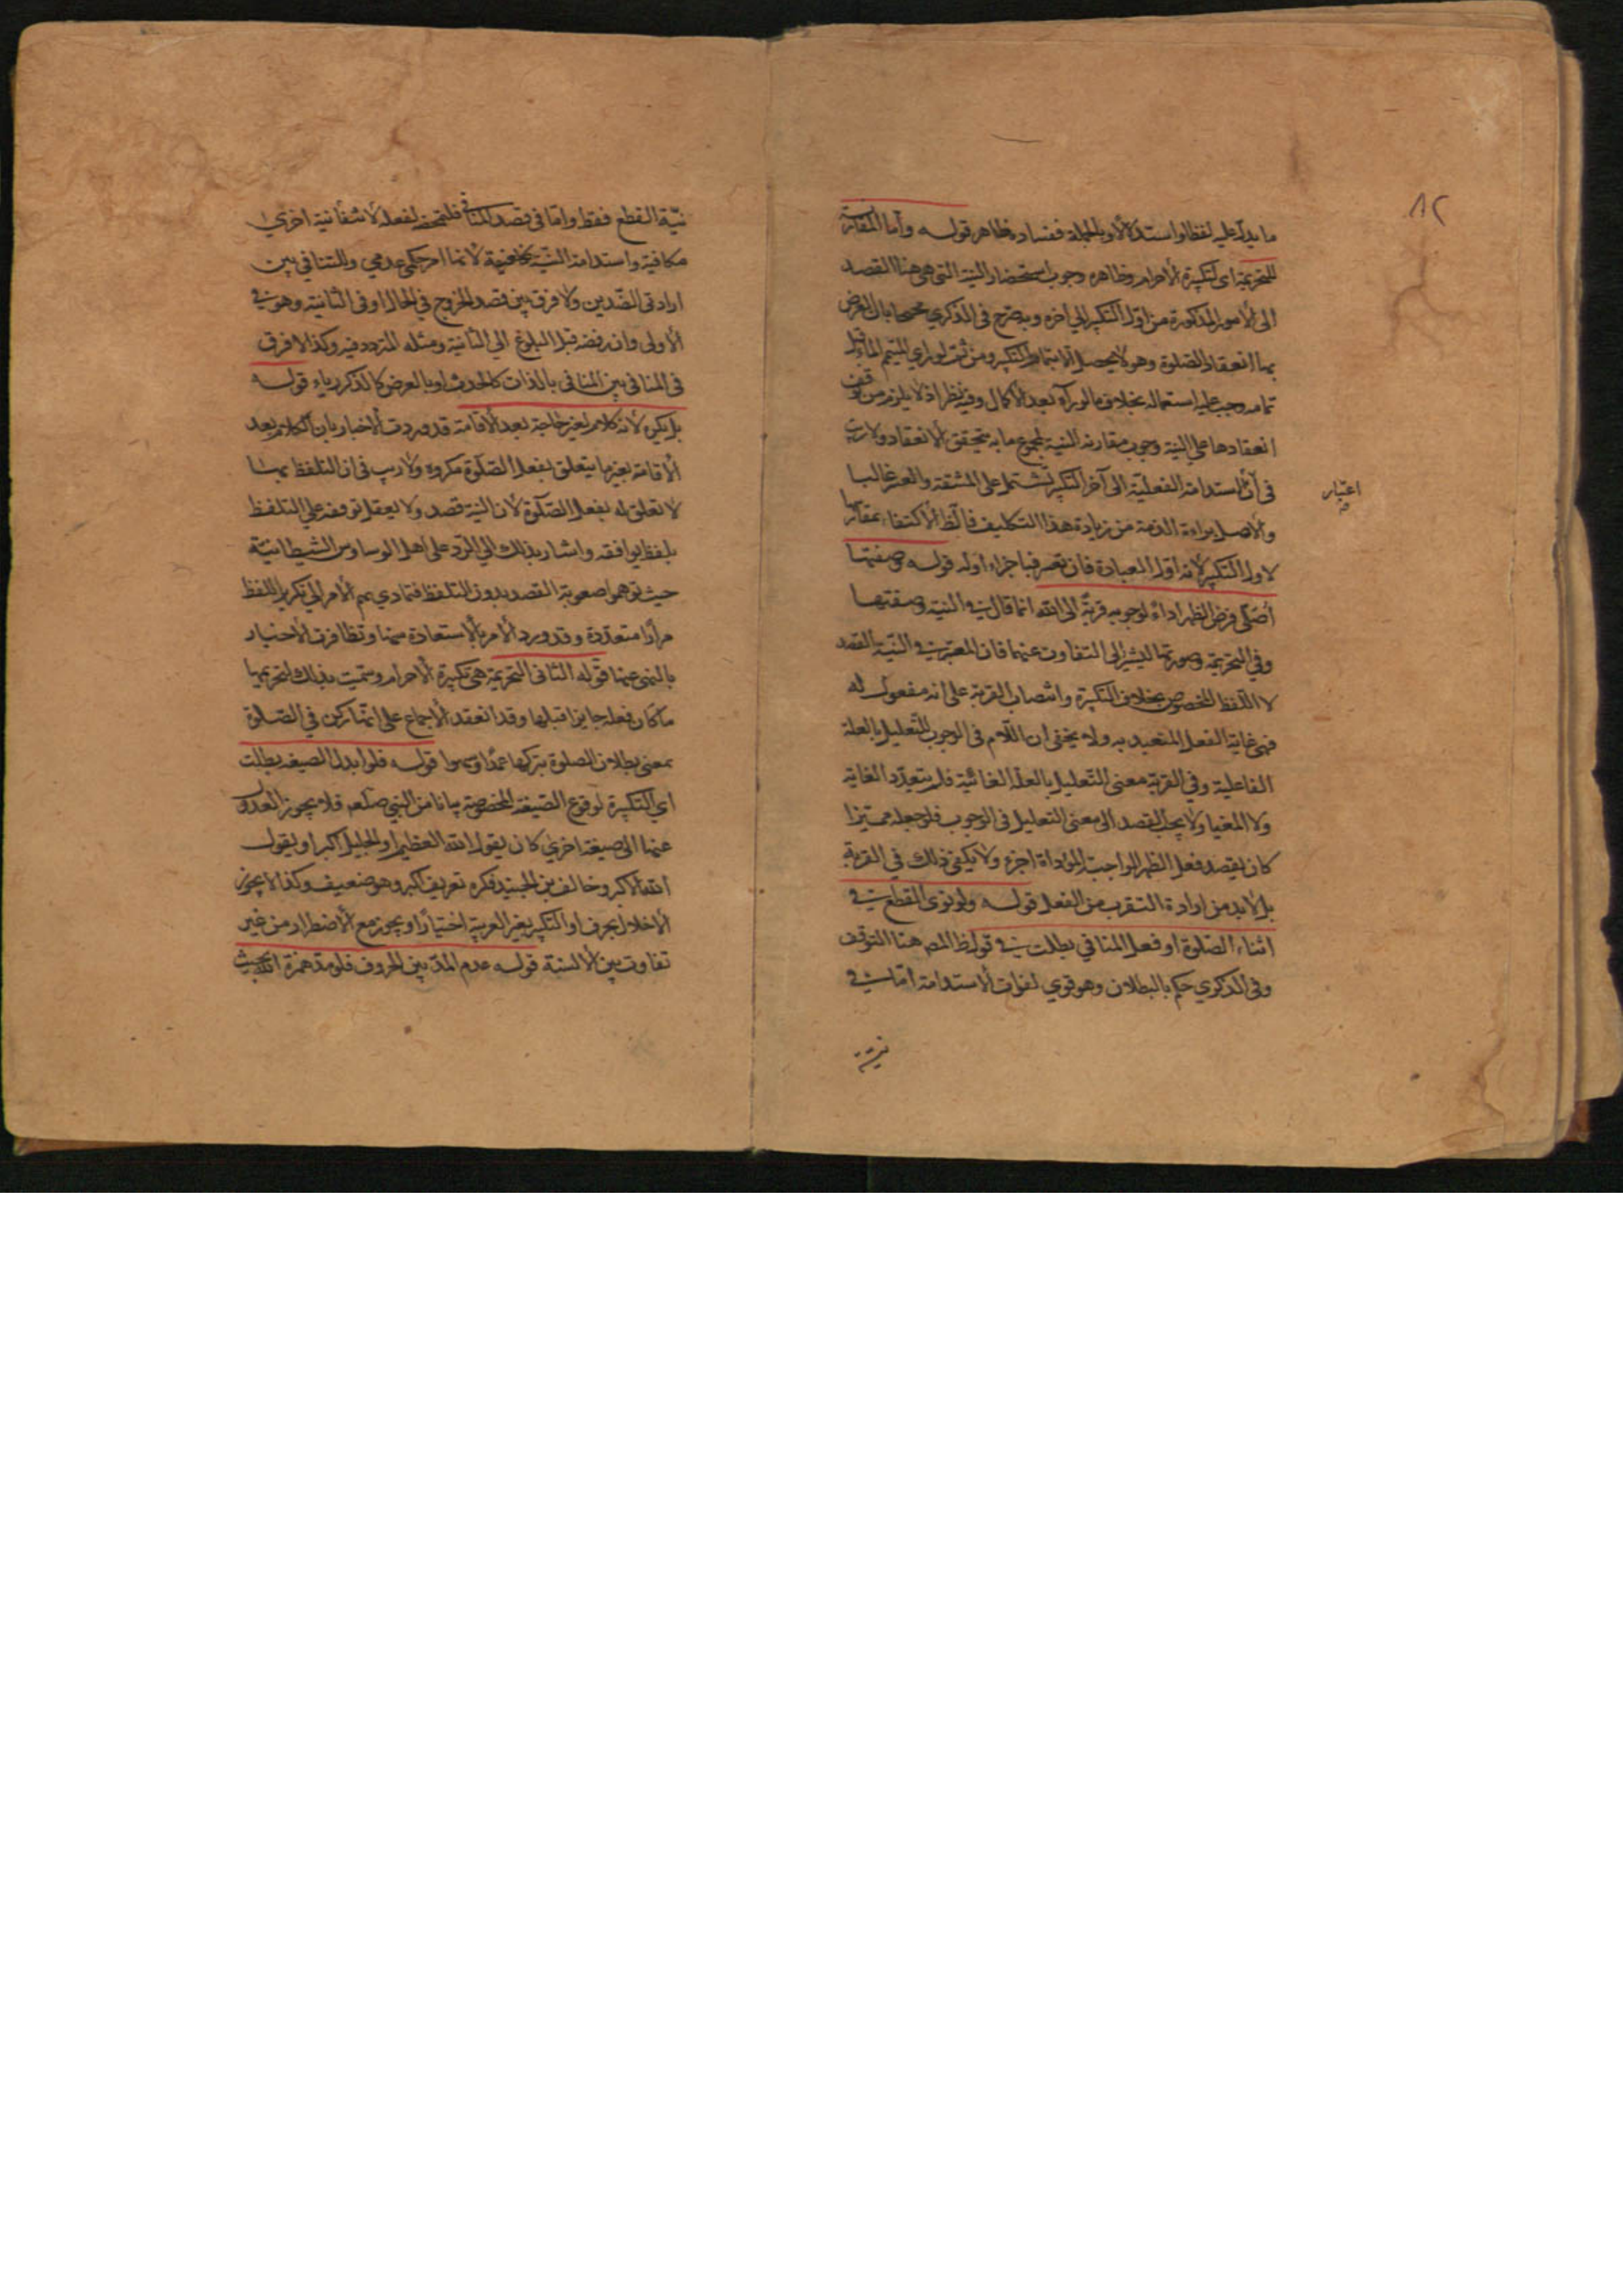 ٨٢
ما يدل عليه لفظا واستدلالا وبالجملة ففساده ظاهر قوله وأما المقارنة
للتحريمة اى لتكبيرة الاحرام وظاهره وجوب استحضار النية التى هى هنا القصد
الى الامور المذكورة من اول التكبير الي اخره وبه صرح فى الذكري محتجا بان الغرض
بها انعقاد الصلوة وهو لا يحصل الا بتمام التكبير ومن ثمة لو راي المتيمم الماء قبل
تمامه وجب عليه استعماله بخلاف ما لو رآه بعد الاكمال وفيه نظر اذ لا يلزم من توقف
انعقادها على النية وجوب مقارنة النية لجميع ما به يتحقق الانعقاد ولا ريب
فى أن استدامة الفعلية الى آخر التكبير تشتمل على المشقة والعسر غالبا
والاصل براءة الذمة من زيادة هذا التكليف فالظ الاكتفاء بمقارنتها
اعتبار
لاول التكبير لانه اول العبادة فان تعسر فباجزاء اوله قوله وصفتها
أصلى فرض الظهر اداءً لوجوبه قربةً الى الله انما قال فى النية وصفتها
وفي التحريمة وصورتها ليشير الى التفاوت عنهما فان المعتبر فى النية القصد
لا اللفظ المخصوص بخلاف التكبيرة وانتصاب القربة على انه مفعول له
فهى غاية الفعل المتعبد به ولا يخفى ان اللام فى الوجوب للتعليل بالعلة
الفاعلية وفي القربة معنى للتعليل بالعلة الغائية فلم يتعدد الغاية
ولا المغيا ولا يجب القصد الى معنى التعليل فى الوجوب فلو جعله مميزا
كان يقصد فعل الظهر الواجبة المؤداة اجزء ولا يكفى ذلك في القربة
بل لا بد من ارادة التقرب من الفعل قوله ولو نوى القطع فى
اثناء الصلوة او فعل المنافي بطلت فى قول ظ المص هنا التوقف
وفى الذكري حكم بالبطلان وهو قوي لفوات الاستدامة امّا فى
نية
نيّة القطع فقط وامّا فى قصد المنافى فلتمحضه لفعله لانتفا نية اخري
مكافية واستدامة النية لانها امر حكمى عدمي وللتنافي بين
ارادتى الضّدين ولا فرق بين قصد الخروج في الحال او فى الثانية وهو فى
الاولى وان رفضه قبل البلوغ الي الثانية ومثله المتردد فيه وكذا لا فرق
فى المنافى بين المنافى بالذات كالحدث او بالعرض كالذكر رياء قوله
بل يكره لانه كلام لغير حاجة بعد الاقامة قد وردت الاخبار بان الكلام بعد
الاقامة بغير ما يتعلق بفعل الصلوة مكروه ولا ريب فى ان التلفظ بها
لا تعلق له بفعل الصّلوة لان النية قصد ولا يعقل توقفه على التلفظ
بلفظ يوافقه واشار بذلك الي الرّد على اهل الوساوس الشيطانية
حيث توهموا صعوبة القصد بدون التلفظ فتمادي بهم الامر الي تكرير اللفظ
مرارًا متعددة وقد ورد الامر بالاستعاذة منها وتظافرت الاخبار
بالنهى عنها قوله الثانى التحريمة هى تكبيرة الاحرام وسميت بذلك لتحريمها
ما كان فعله جايزا قبلها وقد انعقد الاجماع على انها ركن في الصّلوة
بمعنى بطلان الصلوة بتركها عمدًا وسهوا قوله فلو ابدل الصيغة بطلت
اي التكبيرة لوقوع الصّيغة المخصوصة بيانا من النبي صلعم فلا يجوز العدول
عنها الى صيغة اخري كان يقول الله العظيم او الجليل اكبر او يقول
الله الاكبر وخالف بن الجنيد فكره تعريف اكبر وهو ضعيف وكذا لا يجوز
الاخلال بحرف او التكبير بغير العربية اختيارًا ويجوز مع الاضطرار من غير
تفاوت بين الالسنة قوله عدم المدّ بين الحروف فلو مد همزة الله بحيث